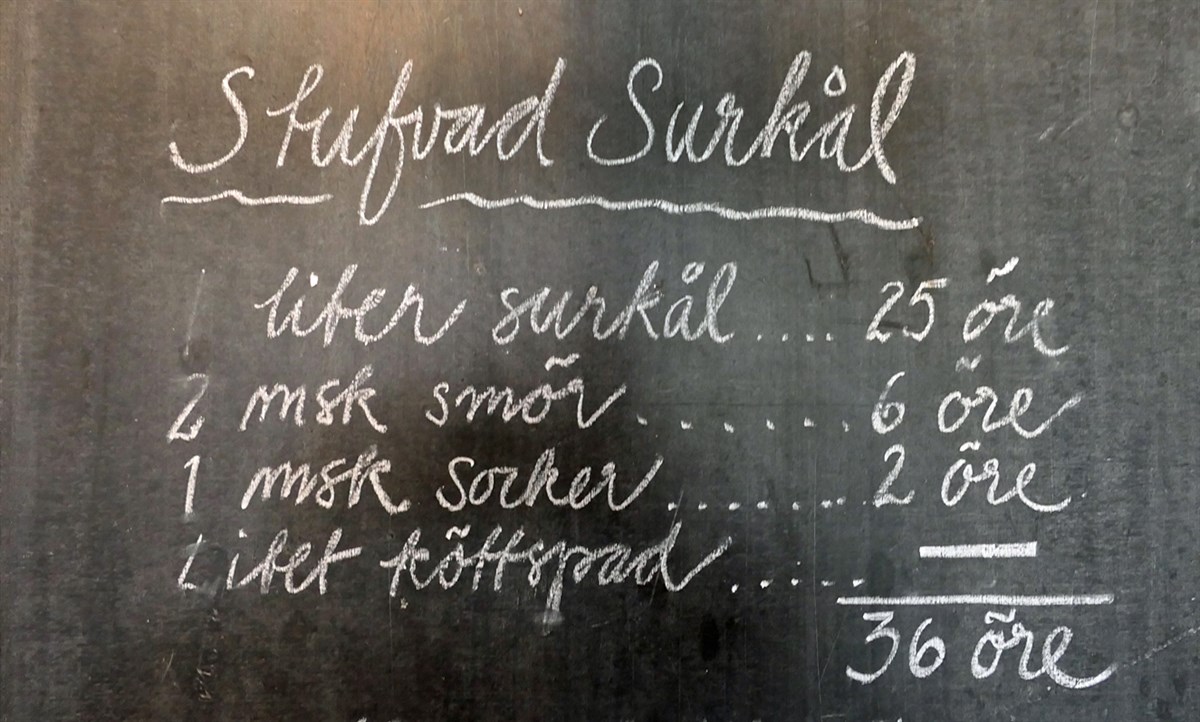 Stufvad Surkål
1 liter surkål .... 25 öre
2 msk smör ....... 6 öre
1 msk socker ........ 2 öre
Litet köttspad ...... —
36 öre